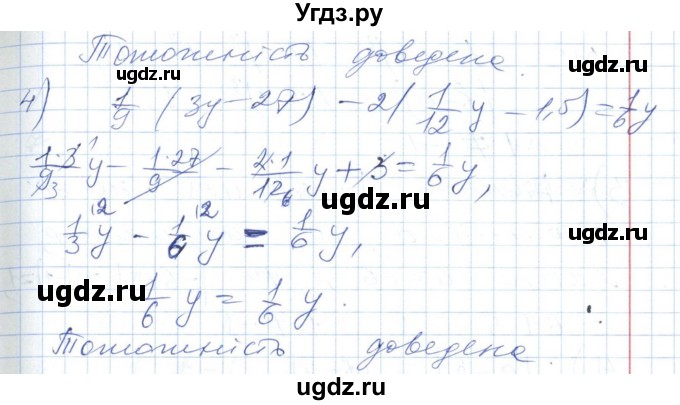 Угдз.ру
Тотожність доведена
ugdz.ru ugdz.ru
4) 1/9 (3y - 27) - 2(1/12 y - 1,5) = 1/6 y
1·3/9 3 1 y - 1·27/9 - 2·1/12 6 y + 3 = 1/6 y,
ugdz.ru
1/3 y \2 - 1/6 y \2 = 1/6 y,
ugdz.ru ugdz.ru
1/6 y = 1/6 y.
Тотожність доведена.
ugdz.ru ugdz.ru
ugdz.ru